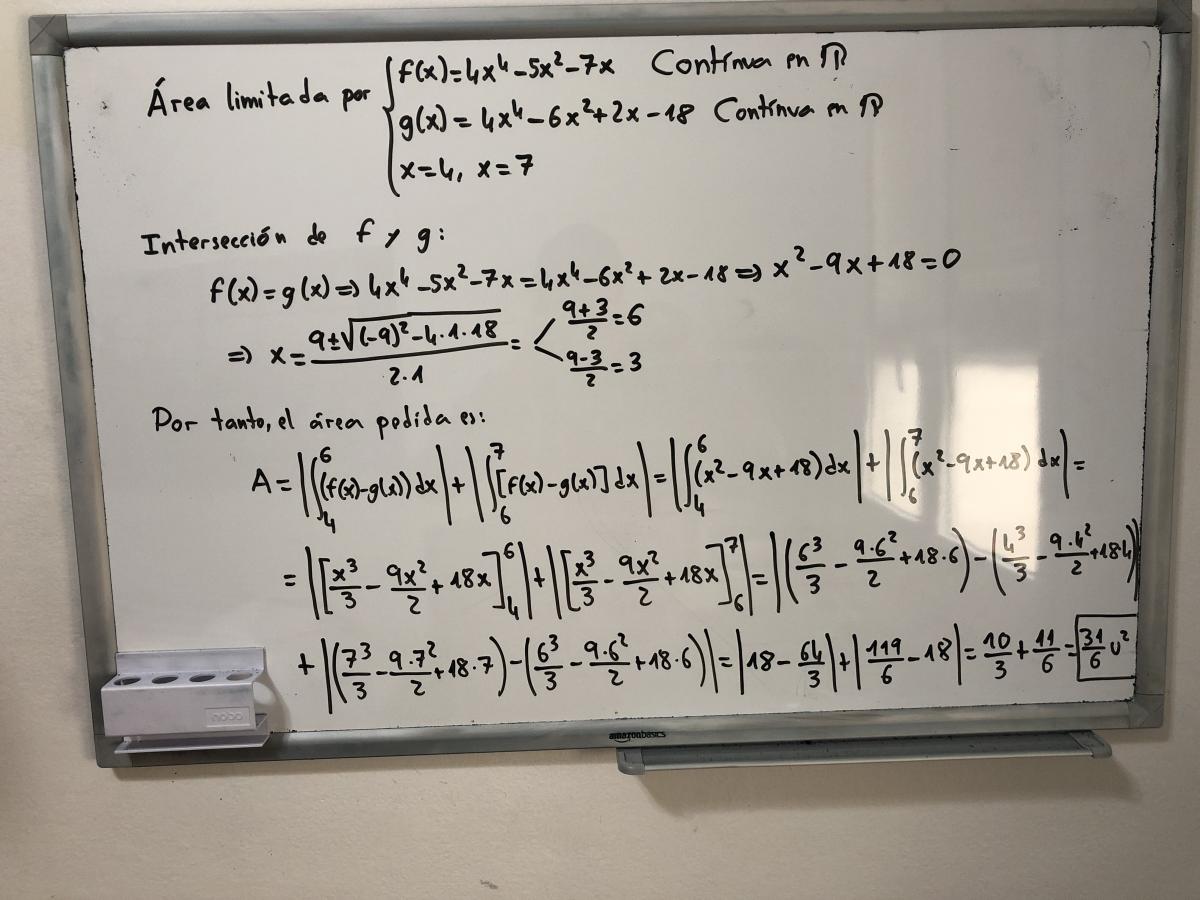 Área limitada por { f(x)=4x⁴-5x²-7x Contínua en ℝ
g(x)=4x⁴-6x²+2x-18 Contínua en ℝ
x=4, x=7
Intersección de f y g:
f(x)=g(x)⇒4x⁴-5x²-7x=4x⁴-6x²+2x-18⇒x²-9x+18=0
⇒ x= (9±√((-9)²-4·1·18))/(2·1) = < (9+3)/2=6
(9-3)/2=3
Por tanto, el área pedida es:
A=|∫₄⁶(f(x)-g(x))dx|+|∫₆⁷[f(x)-g(x)]dx|=|∫₄⁶(x²-9x+18)dx|+|∫₆⁷(x²-9x+18)dx|=
=|[x³/3-9x²/2+18x]₄⁶|+|[x³/3-9x²/2+18x]₆⁷|=|(6³/3-9·6²/2+18·6)-(4³/3-9·4²/2+18·4)|
+|(7³/3-9·7²/2+18·7)-(6³/3-9·6²/2+18·6)|=|18-64/3|+|119/6-18|=10/3+11/6=31/6 u²
nobo
amazonbasics